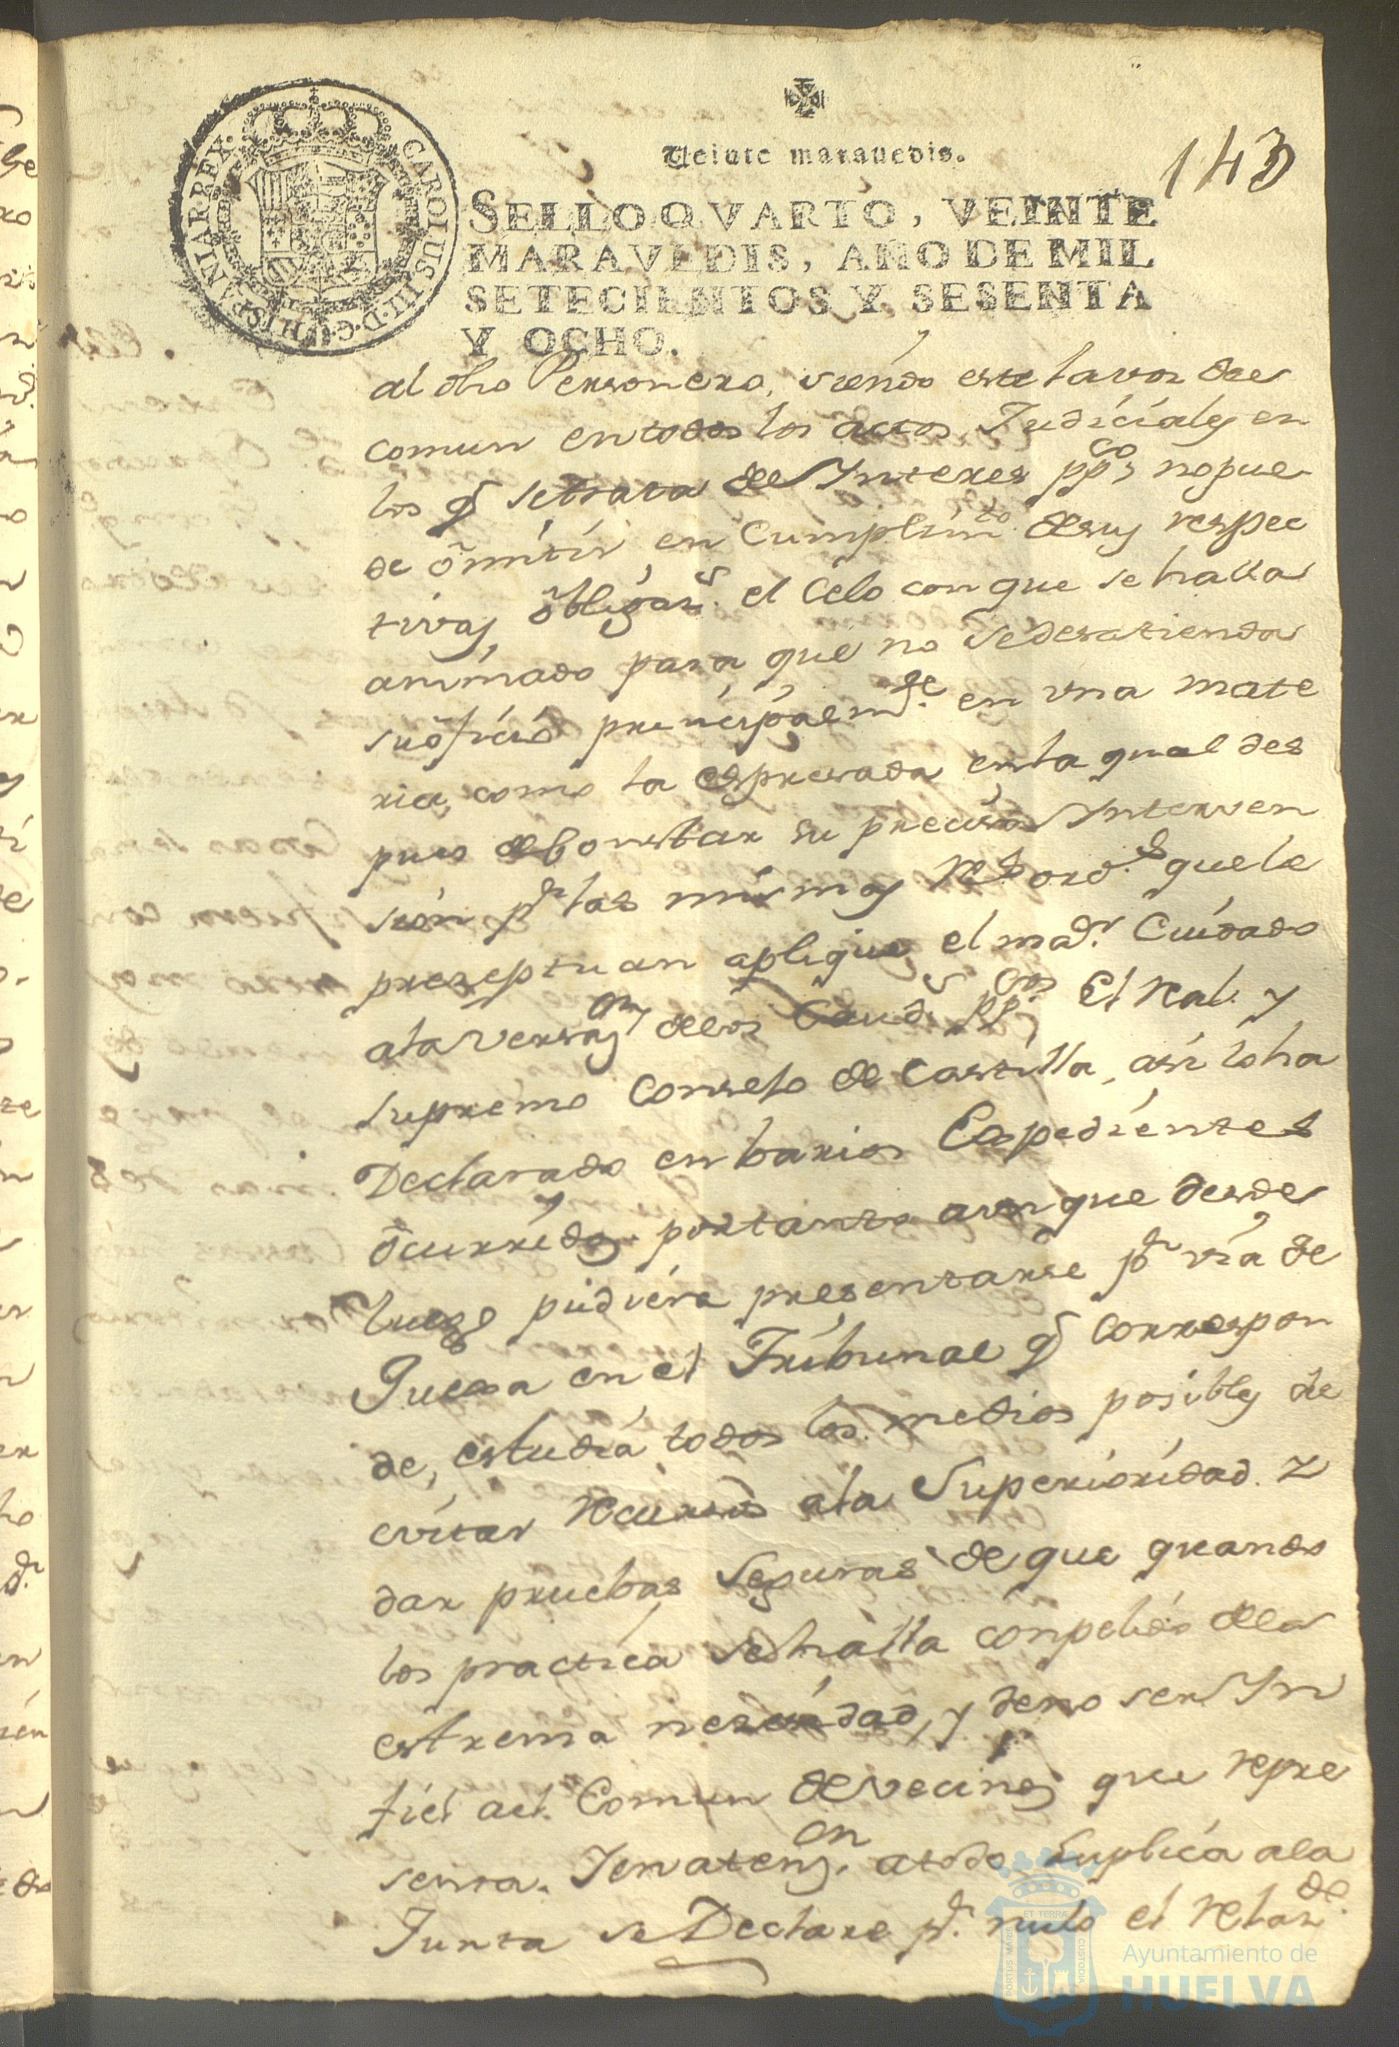 CAROLUS III D.G. HISPANIAR REX.
Veinte maravedis.
143
SELLO QVARTO, VEINTE
MARAVEDIS, AÑO DE MIL
SETECIENTOS Y SESENTA
Y OCHO.
al dho Personero, siendo este la voz del
comun en todos los actos Judiciales en
los q̃ se trata de Interes ppco, no pue
de omitir en Cumplimto de sus respec
tivas obligacs. el Celo con que se halla
animado para que no se desatienda
su oficio principalmte. en una mate
ria, como la espresada en la qual des
pues de constar su precisa Interven
sion pr las mismas Rs. ords. que le
preseptuan aplique el mar. Cuidado
a la versaon de los Caud.s ppcos El Real y
supremo Conselo de Castilla, asi lo ha
Declarado en barios Espedientes
ocurridos. portanto aunque desde
luego pudiera presentarse pr via de
Quexa en el Tribunal q̃ correspon
de, estudia todos los medios posibles de
evitar recursos a la Superioridad. Y
dar pruebas seguras de que quando
los practica se halla conpelido de la
estrema nesesidad, y de no ser In
fiel al Comun de vecinos que repre
senta. Y en atenon. a todo Suplica a la
Junta se Declare pr. nulo el relaz.do
ET TERRÆ
CUSTODIA
PORTUS MARIS
Ayuntamiento de
HUELVA